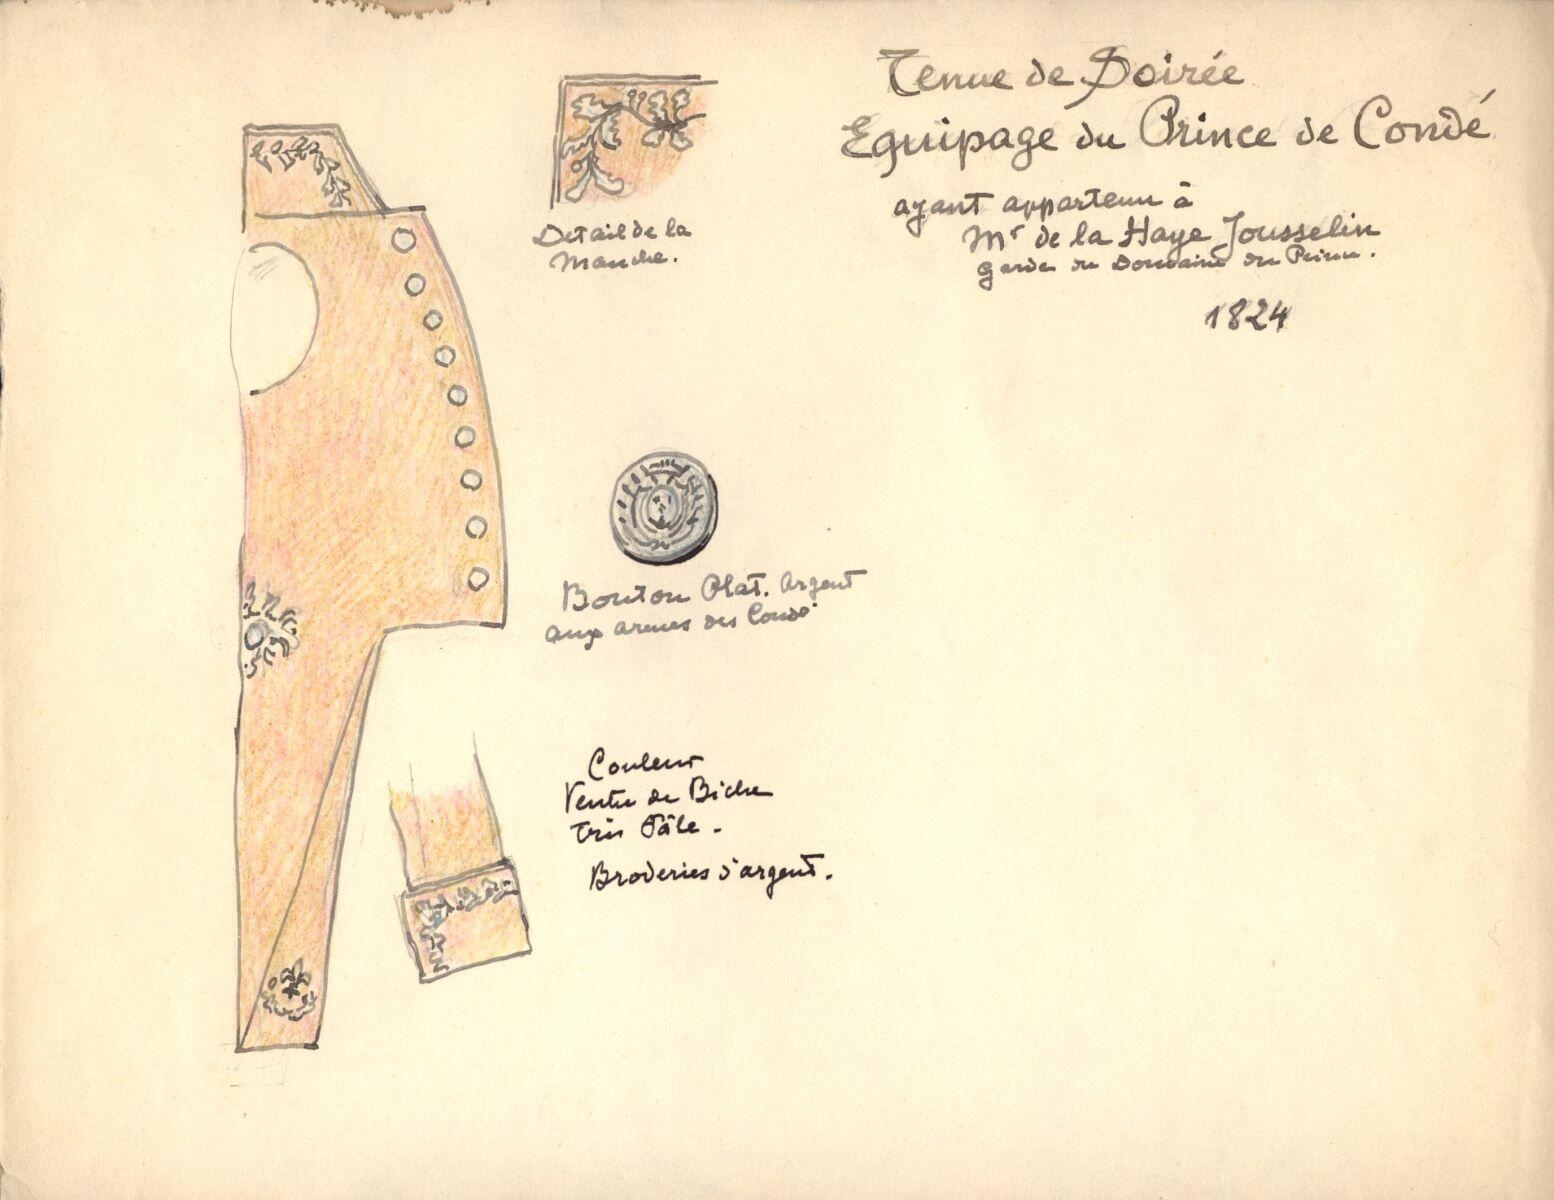 Tenue de Soirée
Equipage du Prince de Condé
ayant appartenu à
Mr de la Haye Jousselin
Garde du Domaine du Prince.
1824
Detail de la
Manche.
Bouton Plat. Argent
aux armes des Condé
Couleur
Ventre de Biche
Très Pâle.
Broderies d'argent.